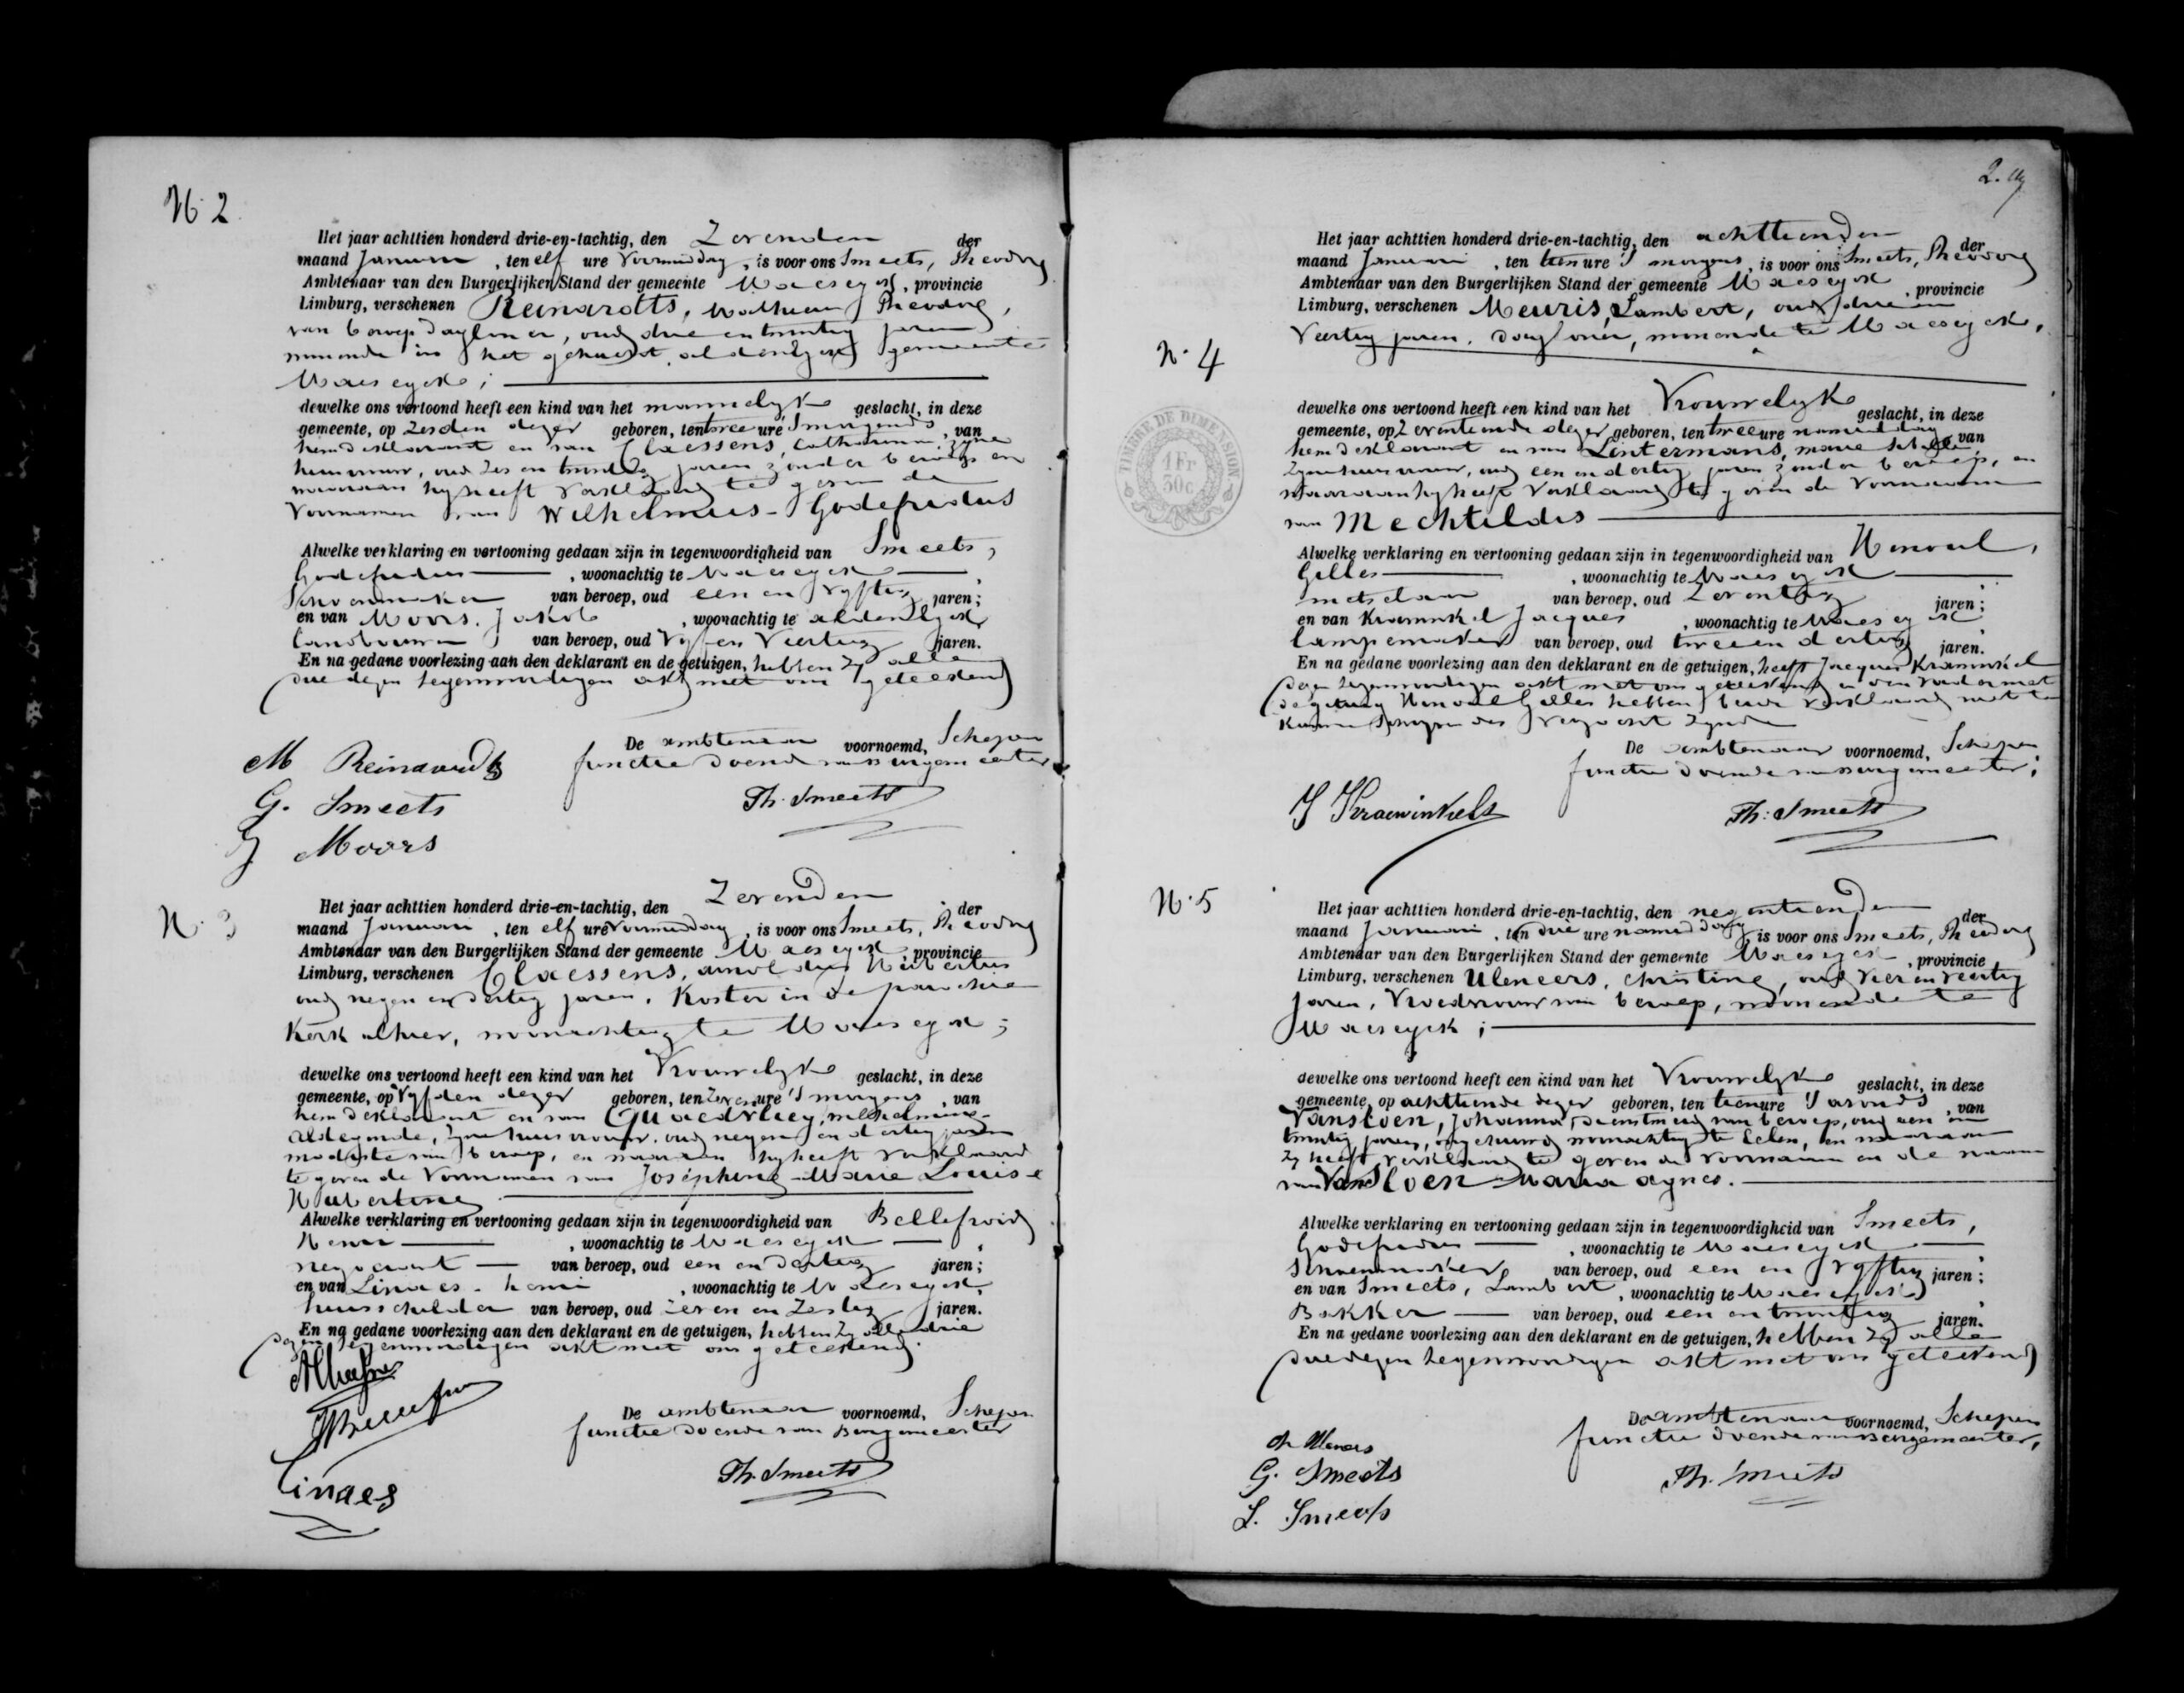 N. 2
Het jaar achttien honderd drie-en-tachtig, den Zevenden der
maand Januari, ten elf ure Voormiddag, is voor ons Smeets, Theodoor
Ambtenaar van den Burgerlijken Stand der gemeente Maeseyck, provincie
Limburg, verschenen Reinardtz, Mathieu Theodoor,
van beroep daglooner, oud drie en twintig jaren
wonende in het gehucht aldeneyck gemeente
Maeseyck;
dewelke ons vertoond heeft een kind van het mannelyke geslacht, in deze
gemeente, op Zesden dezer geboren, ten twee ure 'smorgends, van
hem deklarant en van Claessens, Catharina, zyne
huisvrouw, oud zes en twintig jaren zonder beroep en
waaraan hy heeft verklaard te geven de
Voornamen van Wilhelmus-Godefridus
Alwelke verklaring en vertooning gedaan zijn in tegenwoordigheid van Smeets,
Godefridus, woonachtig te Maeseyck
Schoenmaker van beroep, oud een en vyftig jaren;
en van Moors, Jakob, woonachtig te aldeneyck
landbouwer van beroep, oud Vyf en Veertig jaren.
En na gedane voorlezing aan den deklarant en de getuigen, hebben zy alle
drie dezen tegenwoordigen akt met ons geteekend
De ambtenaar voornoemd, Schepen
functie doende van Burgemeester
M Reinardtz
G. Smeets
J Moors
Th. Smeets
N. 3
Het jaar achttien honderd drie-en-tachtig, den Zevenden der
maand Januari, ten elf ure Voormiddag, is voor ons Smeets, Theodoor
Ambtenaar van den Burgerlijken Stand der gemeente Maeseyck, provincie
Limburg, verschenen Claessens, arnoldus Hubertus
oud negen en dertig jaren, Koster in de parochie
Kerk alhier, woonachtig te Maeseyck;
dewelke ons vertoond heeft een kind van het Vrouwelyke geslacht, in deze
gemeente, op Vyfden dezer geboren, ten Zeven ure 's morgens, van
hem deklarant en van Quaedvlieg, Wilhelmina-
Aldegonde, zyne huisvrouw, oud negen en dertig jaren
modiste van beroep, en waaraan hy heeft verklaard
te geven de Voornamen van Joséphine-Marie Louise
Hubertine
Alwelke verklaring en vertooning gedaan zijn in tegenwoordigheid van Bellefroid
Henri, woonachtig te Maeseyck
negociant van beroep, oud een en dertig jaren;
en van Linaes, henri, woonachtig te Maeseyck,
huisschilder van beroep, oud zeven en zestig jaren.
En na gedane voorlezing aan den deklarant en de getuigen, hebben zy alle drie
dezen tegenwoordigen akt met ons geteekend.
De ambtenaar voornoemd, Schepen
functie doende van Burgemeester
Linaes
Th. Smeets
2.
TIMBRE DE DIMENSION
1 Fr
30c
N. 4
Het jaar achttien honderd drie-en-tachtig, den achttienden der
maand Januari, ten tien ure 's morgens, is voor ons Smeets, Theodoor
Ambtenaar van den Burgerlijken Stand der gemeente Maeseyck, provincie
Limburg, verschenen Meuris, Lambert, oud drie en
Veertig jaren, daglooner, wonende te Maeseyck,
dewelke ons vertoond heeft een kind van het Vrouwelyke geslacht, in deze
gemeente, op Zeventiende dezer geboren, ten twee ure namiddag van
hem deklarant en van Lintermans, marie
zyne huisvrouw, oud een en dertig jaren zonder beroep, en
waaraan hy heeft verklaard te geven de Voornamen
van Mechtildis
Alwelke verklaring en vertooning gedaan zijn in tegenwoordigheid van
Gilles, woonachtig te Maeseyck
metselaar van beroep, oud Zeventig jaren;
en van Krawinkel Jacques, woonachtig te Maeseyck
lampemaker van beroep, oud twee en dertig jaren.
En na gedane voorlezing aan den deklarant en de getuigen, heeft Jacques Krawinkel
dezen tegenwoordigen akt met ons geteekend en den vader met
de getuige Gilles hebben beide verklaard niet te
kunnen schryven des verzocht zynde
De ambtenaar voornoemd, Schepen
functie doende van Burgemeester;
J Krawinkels
Th. Smeets
N. 5
Het jaar achttien honderd drie-en-tachtig, den negentienden der
maand Januari, ten drie ure namiddag, is voor ons Smeets, Theodoor
Ambtenaar van den Burgerlijken Stand der gemeente Maeseyck, provincie
Limburg, verschenen Uleneers, Christine, oud Vier en Veertig
Jaren, Vroedvrouw van beroep, wonende te
Maeseyck;
dewelke ons vertoond heeft een kind van het Vrouwelyke geslacht, in deze
gemeente, op achttiende dezer geboren, ten tien ure 's avonds, van
Vansloen, Johanna, dienstmeid van beroep, oud een en
twintig jaren, ongehuwd woonachtig te Eelen, en waaraan
zy heeft verklaard te geven de voornamen en de naam
van Vansloen Maria agnes.
Alwelke verklaring en vertooning gedaan zijn in tegenwoordigheid van Smeets,
Godefridus, woonachtig te Maeseyck
Schoenmaker van beroep, oud een en vyftig jaren;
en van Smeets, Lambert, woonachtig te Maeseyck
Bakker van beroep, oud een en twintig jaren.
En na gedane voorlezing aan den deklarant en de getuigen, hebben zy alle
drie dezen tegenwoordigen akt met ons geteekend
De ambtenaar voornoemd, Schepen
functie doende van Burgemeester,
G. Smeets
L. Smeets
Th. Smeets